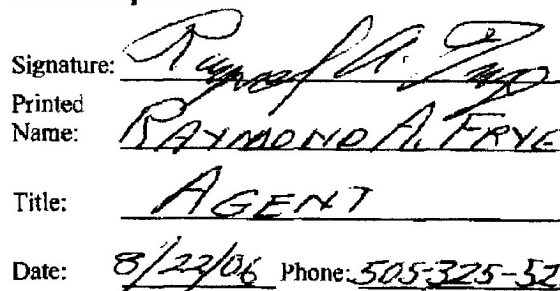 Signature: Raymond A. Frye
Printed
Name: RAYMOND A. FRYE
Title: AGENT
Date: 8/22/06 Phone: 505-325-52